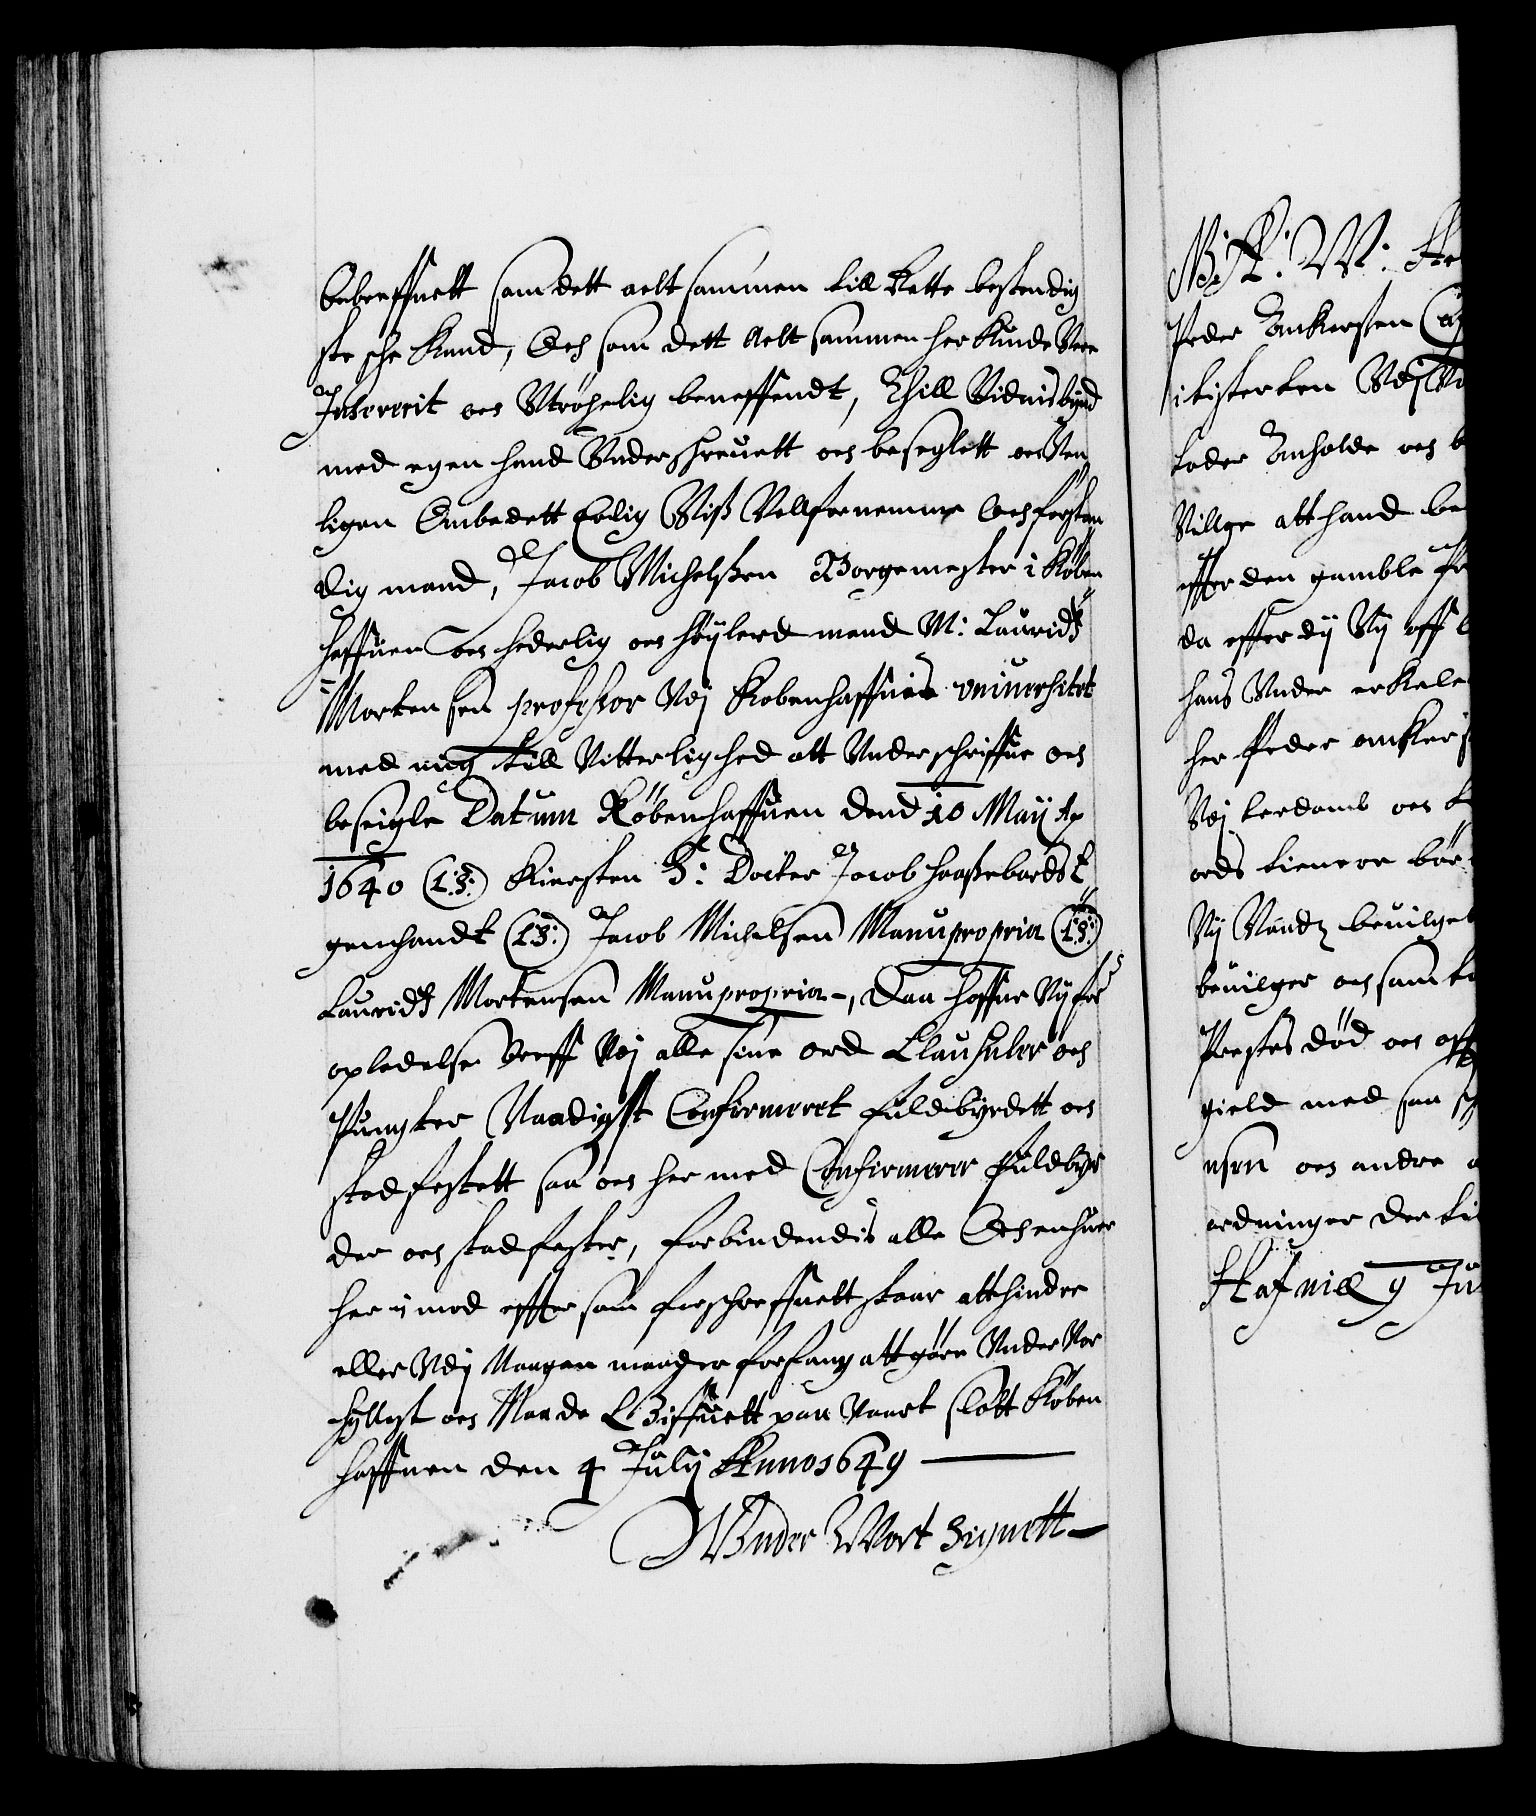 Onbereffuett som dett aelt sammen till Rette bestendig
ste sche Kand, Och som dett Aelt sammen her Kunde Vere
Insererit oc Vtröchelig beneffendt, Thill Vidnisbyrd
med egen hand Vnderschreuett och beseglett och Ven
ligen Ombedett Erlig Viß Vellfornemme Och forstan
dig mand, Jacob Michelßen Borgemester i Köben
haffuen och hederlig oc höylerd mand M: Lauridz
Mortensen professor Vdj Kobenhaffuens vniuersitet
med mig till Vitterlighed att Vnderschriffue och
beseigle Datum Köbenhaffuen dend 10 Maij Ao
1640 (L:S:) Kiersten S: Docter Jacob Haßebardz
genhandt (LS:) Jacob Michelsen Manupropria (L:S:)
Lauridz Mortensen Manupropria, Daa haffue Vy for
opledelse breff Vdj alle sine ord Clausuler och
Puncter Naadigst Confirmeret fuldbyrdett och
stadfestett saa och her med Confirmerer fuldbyr
der och stadfester, forbindendis alle Och enhuer
her i mod effter som forschreffuett staar att hindre
eller Vdj Naagen maader forfang att göre Vnder Vor
hyllest och Naade Giffuett paa Vaart slott Köben
haffuen den 4 Julij Anno 1649
Vnder Wort Zignett
Peder Ankersen
Villge att hand
effter den gamble
da effterdj Vij aff
hans Vnder
her Peder anker
Vdj lerdomb och
Vij Naadz beuilget
beuilger och sam
Prestes död och
gield med saa
nsen och andre
ordninger der
Hafniæ 9 Ju